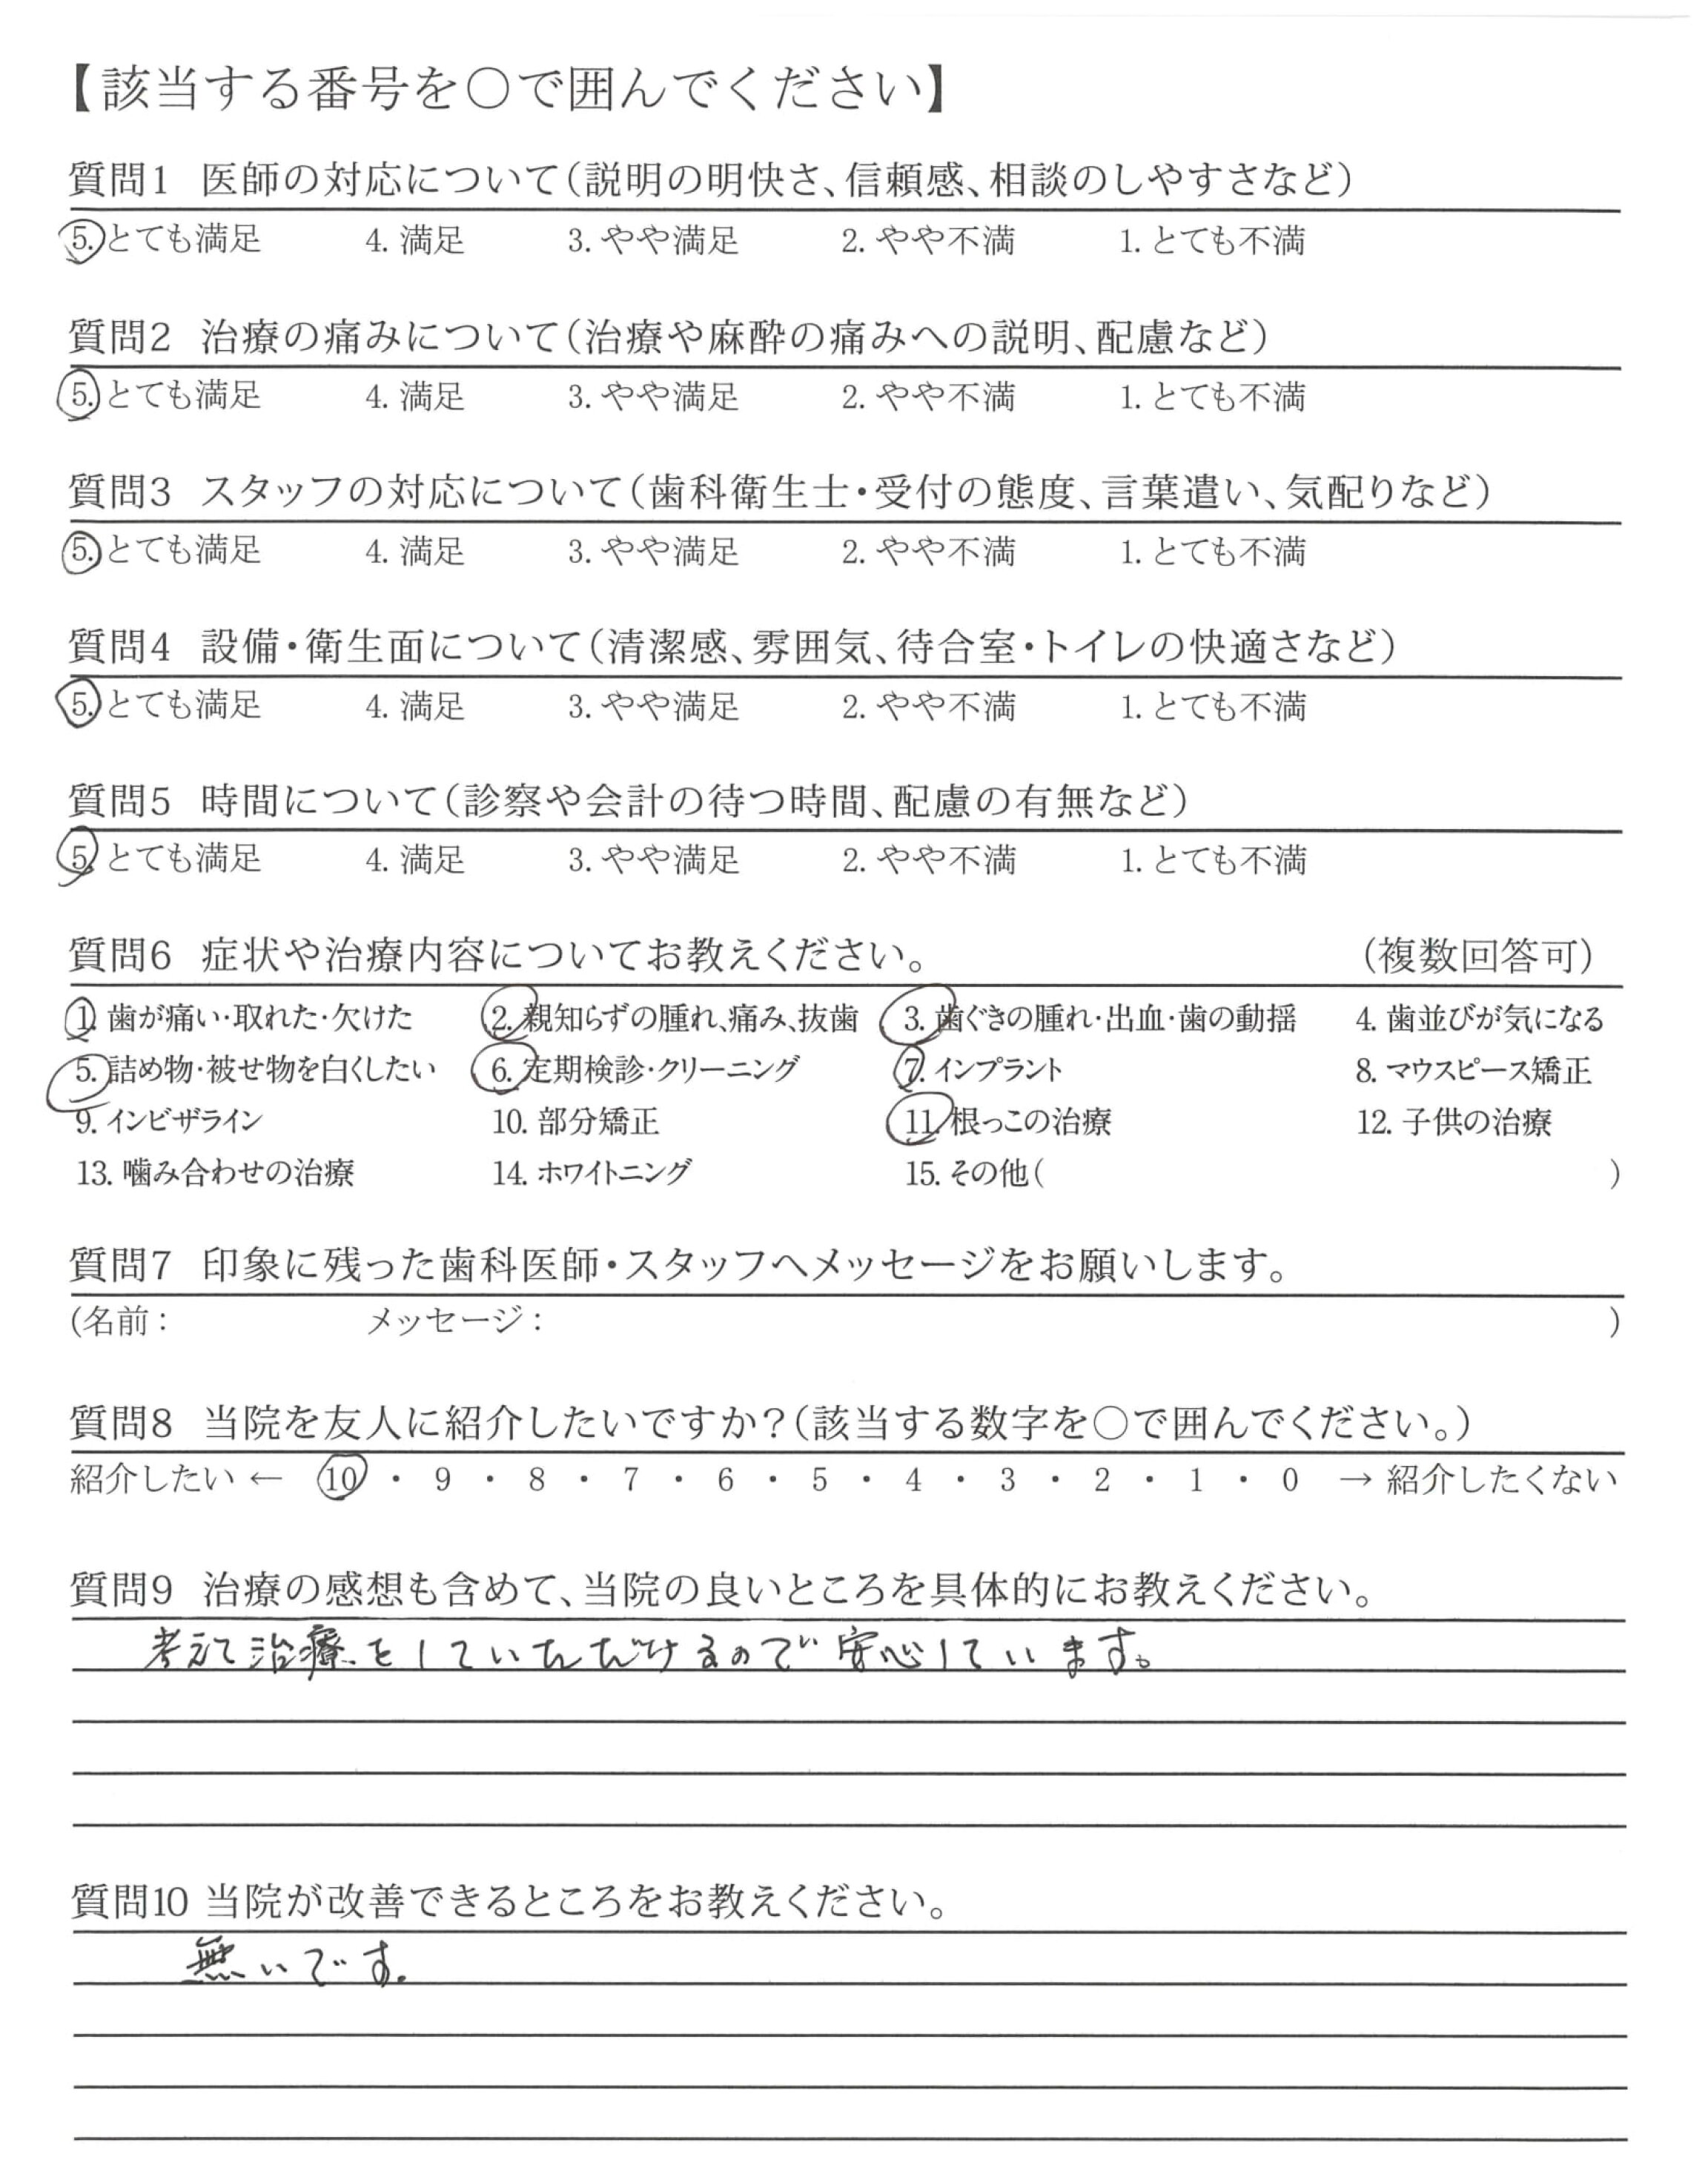 【該当する番号を○で囲んでください】
質問1 医師の対応について(説明の明快さ、信頼感、相談のしやすさなど)
5. とても満足 4. 満足 3. やや満足 2. やや不満 1. とても不満
質問2 治療の痛みについて(治療や麻酔の痛みへの説明、配慮など)
5. とても満足 4. 満足 3. やや満足 2. やや不満 1. とても不満
質問3 スタッフの対応について(歯科衛生士・受付の態度、言葉遣い、気配りなど)
5. とても満足 4. 満足 3. やや満足 2. やや不満 1. とても不満
質問4 設備・衛生面について(清潔感、雰囲気、待合室・トイレの快適さなど)
5. とても満足 4. 満足 3. やや満足 2. やや不満 1. とても不満
質問5 時間について(診察や会計の待つ時間、配慮の有無など)
5. とても満足 4. 満足 3. やや満足 2. やや不満 1. とても不満
質問6 症状や治療内容についてお教えください。 (複数回答可)
1. 歯が痛い・取れた・欠けた 2. 親知らずの腫れ、痛み、抜歯 3. 歯ぐきの腫れ・出血・歯の動揺 4. 歯並びが気になる
5. 詰め物・被せ物を白くしたい 6. 定期検診・クリーニング 7. インプラント 8. マウスピース矯正
9. インビザライン 10. 部分矯正 11. 根っこの治療 12. 子供の治療
13. 噛み合わせの治療 14. ホワイトニング 15. その他( )
質問7 印象に残った歯科医師・スタッフへメッセージをお願いします。
(名前： メッセージ： )
質問8 当院を友人に紹介したいですか？(該当する数字を○で囲んでください。)
紹介したい ← 10 ・ 9 ・ 8 ・ 7 ・ 6 ・ 5 ・ 4 ・ 3 ・ 2 ・ 1 ・ 0 → 紹介したくない
質問9 治療の感想も含めて、当院の良いところを具体的にお教えください。
考えて治療をしていただけるので安心しています。
質問10 当院が改善できるところをお教えください。
無いです。